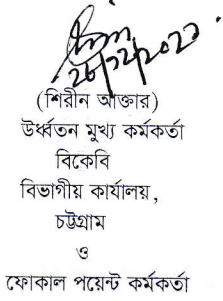 (শিরীন আক্তার)
উর্ধ্বতন মুখ্য কর্মকর্তা
বিকেবি
বিভাগীয় কার্যালয়,
চট্টগ্রাম
ও
ফোকাল পয়েন্ট কর্মকর্তা